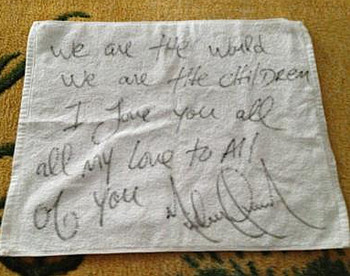 we are the would
we are the children
I love you all
all my love to All
of you